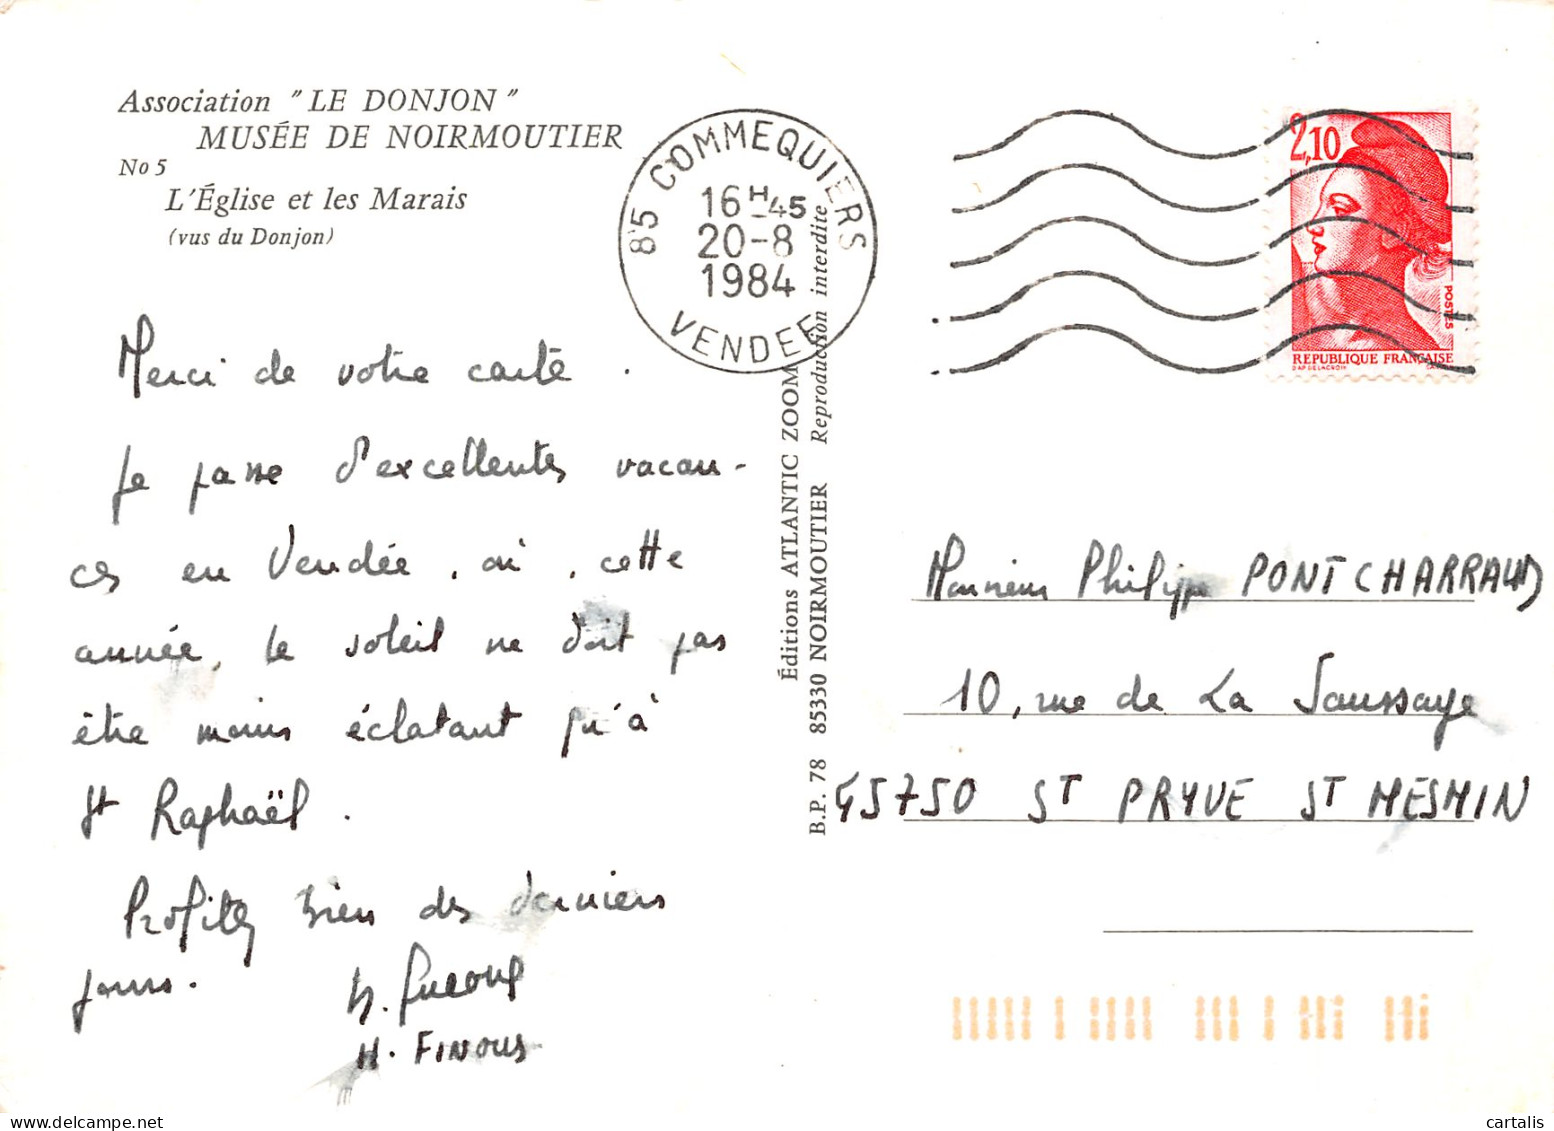 Association "LE DONJON"
MUSÉE DE NOIRMOUTIER
No 5
L'Église et les Marais
(vus du Donjon)
85 COMMEQUIERS
16 H 45
20-8
1984
VENDEE
2,10
POSTES
REPUBLIQUE FRANÇAISE
D'AP. DELACROIX
Merci de votre carte.
Je passe d'excellentes vacan-
ces en Vendée, où, cette
année, le soleil ne doit pas
être moins éclatant qu'à
St Raphaël.
Profitez bien des derniers
jours.
H. FINOUS
Éditions ATLANTIC ZOOM
B.P. 78 85330 NOIRMOUTIER Reproduction interdite
Monsieur Philippe PONTCHARRAUD
10, rue de La Saussaye
45750 ST PRYVE ST MESMIN
cartalis